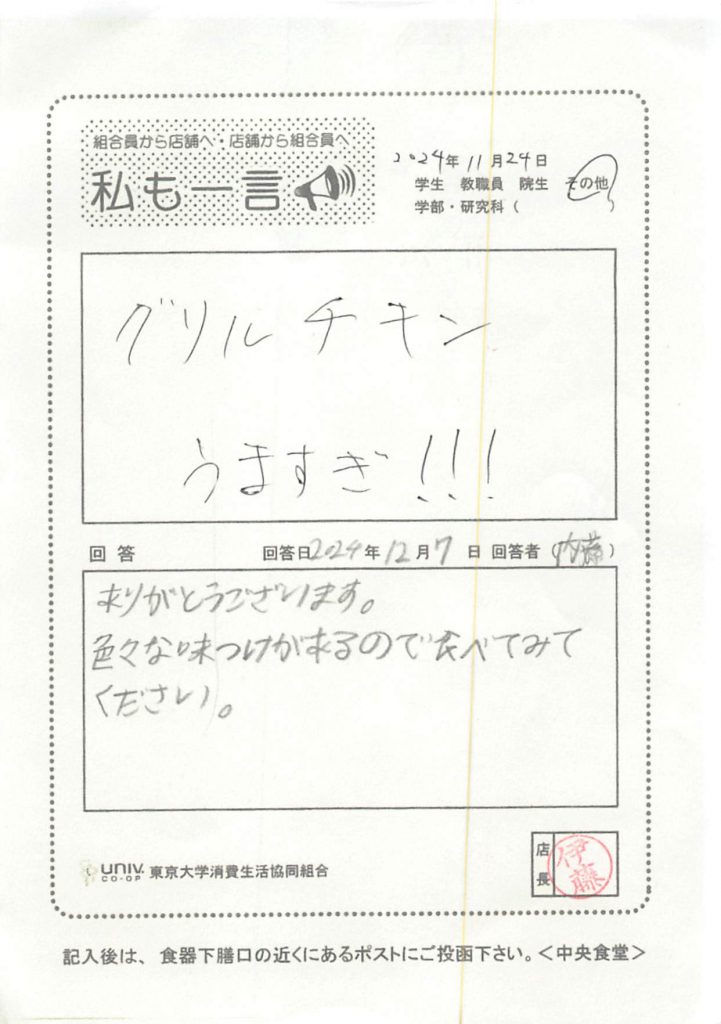 組合員から店舗へ・店舗から組合員へ
私も一言
2024年11月24日
学生 教職員 院生 その他
学部・研究科( )
グリルチキン
うますぎ!!!
回答 回答日2024年12月7日 回答者(内藤)
ありがとうございます。
色々な味つけがあるので食べてみて
ください。
univ. CO-OP 東京大学消費生活協同組合
店長 伊藤
記入後は、食器下膳口の近くにあるポストにご投函下さい。<中央食堂>